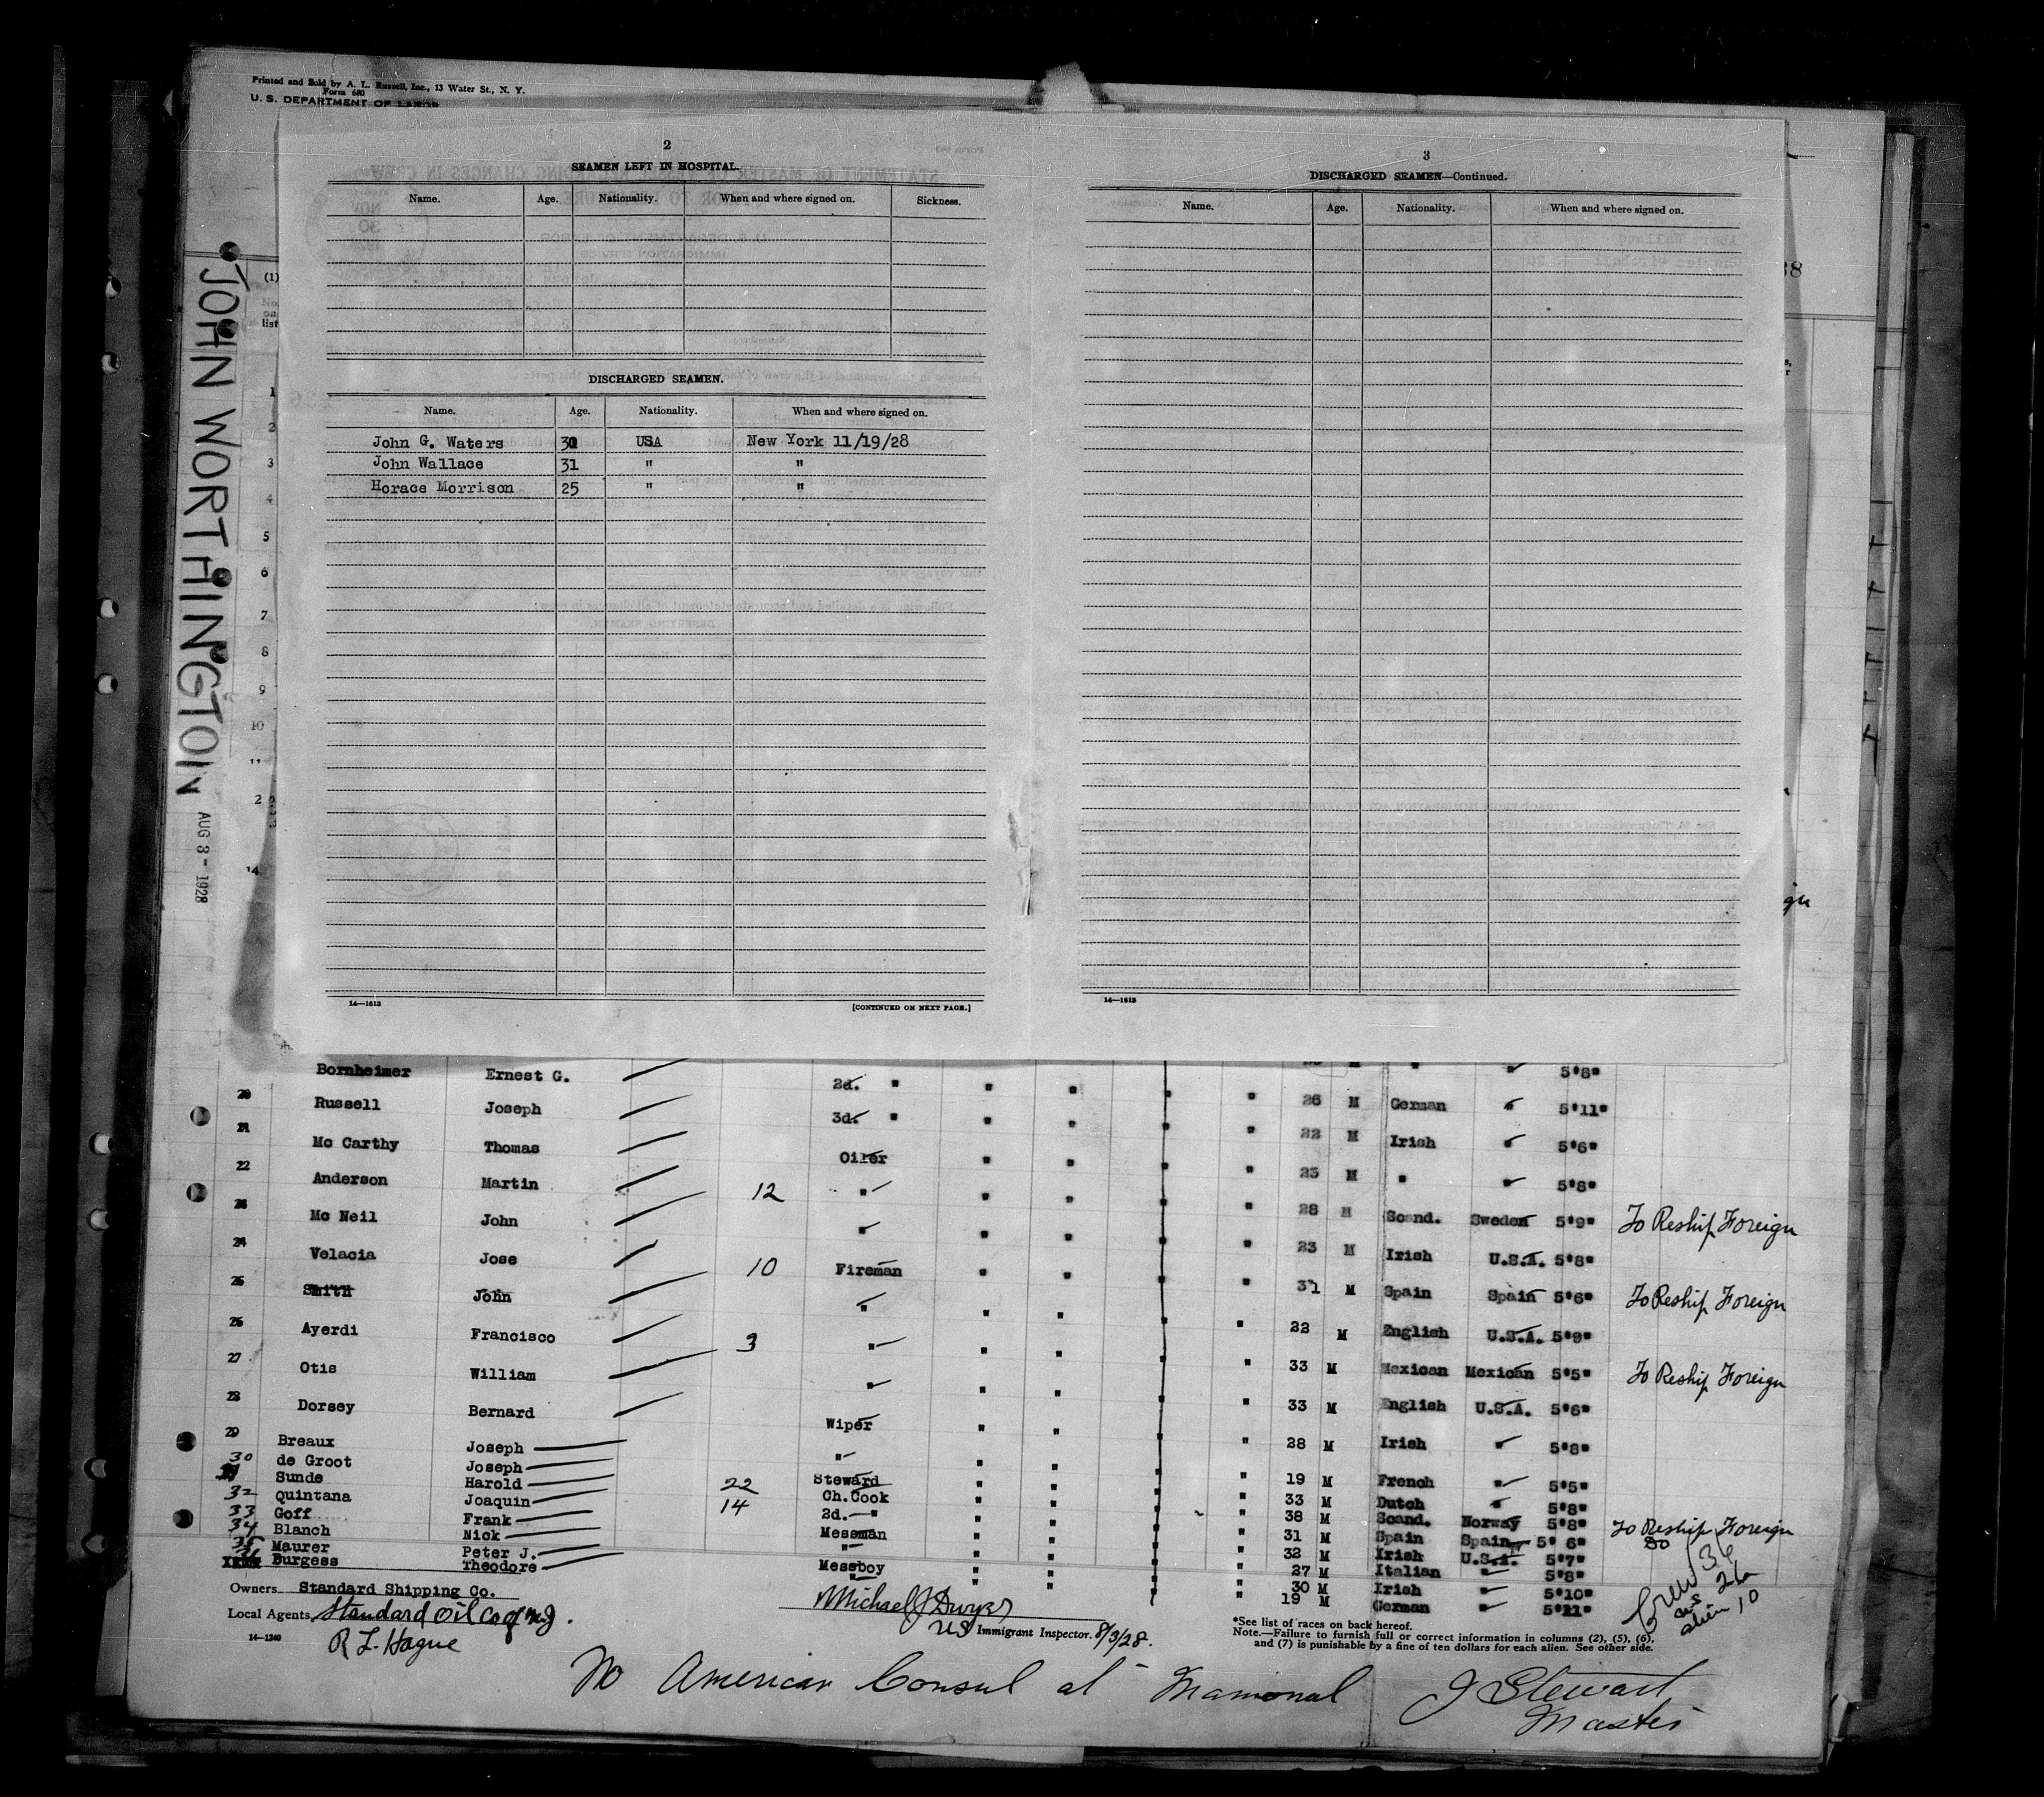 Printed and Sold by A. L. Russell, Inc., 13 Water St., N. Y.
Form 680
U. S. DEPARTMENT OF LABOR
JOHN WORTHINGTOIN
AUG 3 - 1928
(1)
list
1
2
3
4
5
6
7
8
9
10
11
2
14
2
SEAMEN LEFT IN HOSPITAL.
Name. Age. Nationality. When and where signed on. Sickness.
DISCHARGED SEAMEN.
Name. Age. Nationality. When and where signed on.
John G. Waters USA New York 11/19/28
John Wallace 31 " "
Horace Morrison 25 " "
14—1613 [CONTINUED ON NEXT PAGE.]
3
DISCHARGED SEAMEN—Continued.
Name. Age. Nationality. When and where signed on.
14—1613
Bornheimer Ernest G. 2d. " " " " " M " " 5'8"
20 Russell Joseph 3d. " " " " " 26 M German " 5'11"
21 Mc Carthy Thomas Oiler " " " " 22 M Irish " 5'6"
22 Anderson Martin 12 " " " " " 23 M " " 5'8"
23 Mc Neil John " " " " " 28 M Scand. Sweden 5'9" To Reship Foreign
24 Velacia Jose 10 Fireman " " " " 23 M Irish U.S.A. 5'8"
25 Smith John " " " " " 31 M Spain Spain 5'6" To Reship Foreign
26 Ayerdi Francisco 3 " " " " " 22 M English U.S.A. 5'9"
27 Otis William " " " " " 33 M Mexican Mexican 5'5" To Reship Foreign
28 Dorsey Bernard Wiper " " " " 33 M English U.S.A. 5'6"
29 Breaux Joseph " " " " " 28 M Irish " 5'8"
30 de Groot Joseph Steward " " " " 19 M French " 5'5"
31 Sunde Harold 22 Ch. Cook " " " " 33 M Dutch " 5'8"
32 Quintana Joaquin 14 2d. " " " " " 38 M Scand. Norway 5'8" To Reship Foreign
33 Goff Frank Messman " " " " 31 M Spain Spain 5' 6" Do
34 Blanch Nick " " " " " 32 M Irish U.S.A. 5'7"
35 Maurer Peter J. Messboy " " " " 27 M Italian " 5'8"
36 Burgess Theodore " " " " " 30 M Irish " 5'10"
19 M German " 5'11"
Crew 36
aus 26
alien 10
Owners Standard Shipping Co.
Local Agents Standard Oil Co of N.J.
R L. Hague
14—1240
Michael J Dwyer
US Immigrant Inspector. 8/3/28.
*See list of races on back hereof.
Note.—Failure to furnish full or correct information in columns (2), (5), (6),
and (7) is punishable by a fine of ten dollars for each alien. See other side.
No American Consul at Mamonal
J Stewart
Master